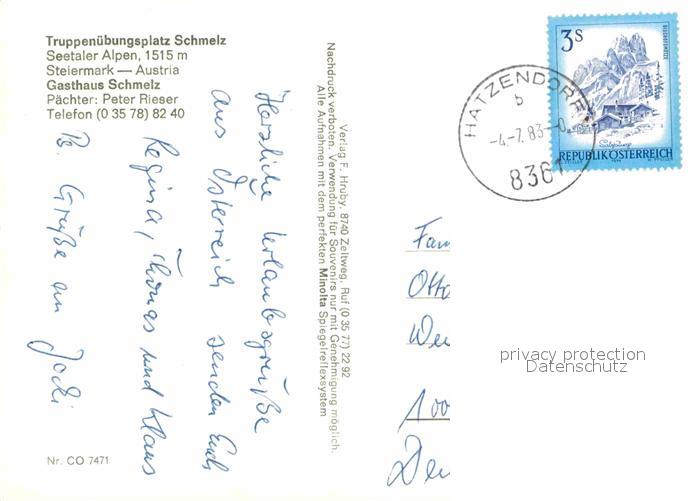 Truppenübungsplatz Schmelz
Seetaler Alpen, 1515 m
Steiermark — Austria
Gasthaus Schmelz
Pächter: Peter Rieser
Telefon (0 35 78) 82 40
Herzliche Urlaubsgrüße
aus Österreich senden Euch
Regina, Thomas und Klaus
Ps. Grüße an Jocki
Nr. CO 7471
Verlag F. Hruby. 8740 Zeltweg, Ruf (0 35 77) 22 92
Nachdruck verboten. Verwendung für Souvenirs nur mit Genehmigung möglich.
Alle Aufnahmen mit dem perfekten Minolta Spiegelreflexsystem
3S
REPUBLIK ÖSTERREICH
HATZENDORF
b
-4.-7.83-
8361
Fam
Otto
We
100
privacy protection
Datenschutz